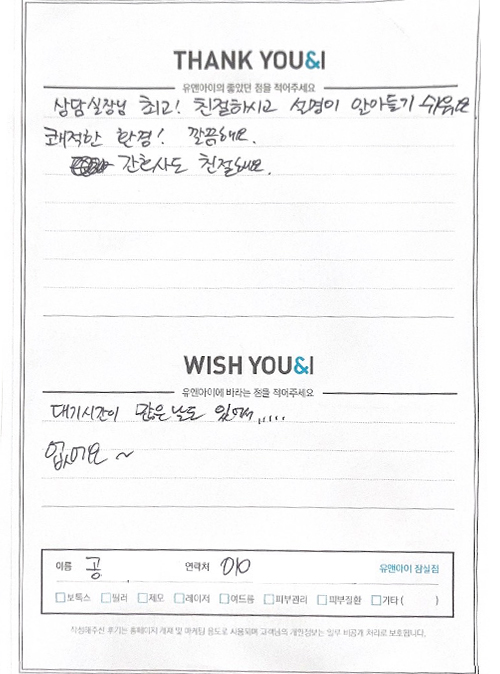 THANK YOU&I
유앤아이의 좋았던 점을 적어주세요
상담실장님 최고! 친절하시고 설명이 알아듣기 쉬워요
쾌적한 환경! 깔끔해요.
간호사도 친절해요.
WISH YOU&I
유앤아이에 바라는 점을 적어주세요
대기시간이 많은날도 있어서.....
없어요~
이름 공 연락처 010 유앤아이 잠실점
보톡스 필러 제모 레이저 여드름 피부관리 피부질환 기타 ( )
작성해주신 후기는 홈페이지 게재 및 마케팅 용도로 사용되며 고객님의 개인정보는 일부 비공개 처리로 보호됩니다.